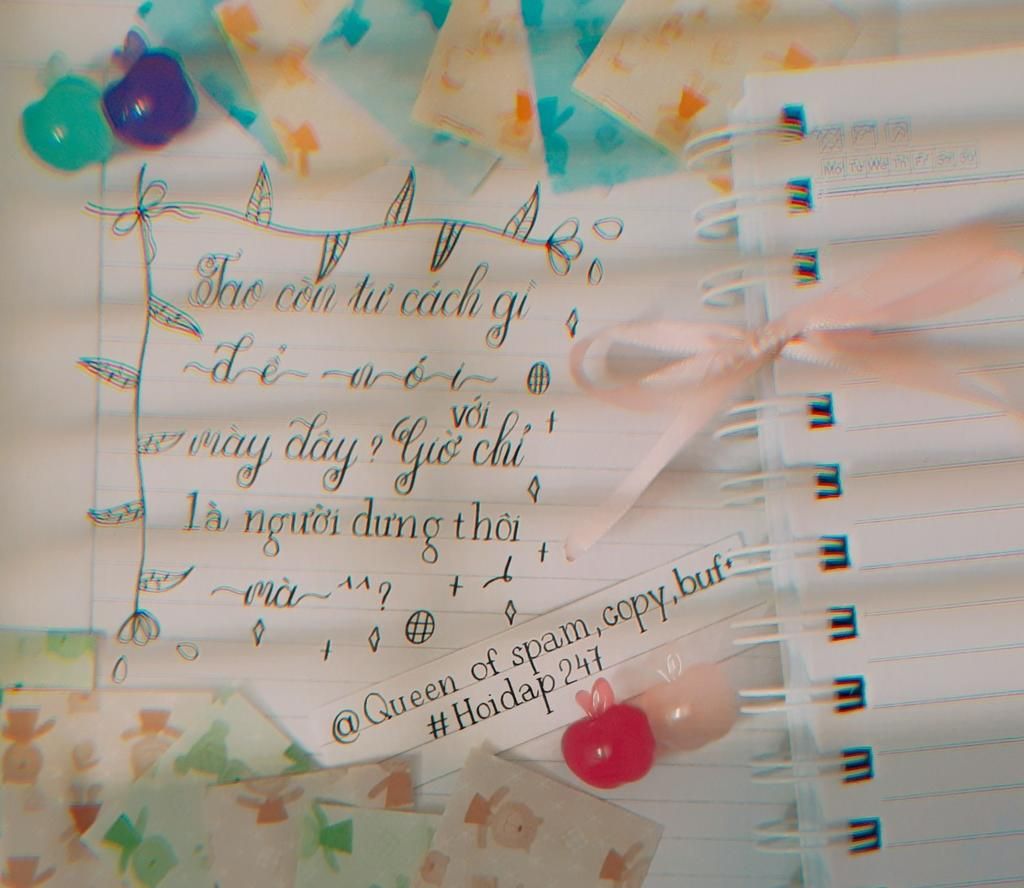 Tao còn tư cách gì
~để~ ~nói~
với
mày đây? Giờ chỉ
là người dưng thôi
~mà~^^?
@Queen of spam, copy, buf
#Hoidap247
Mo Tu We Th Fr Sa Su